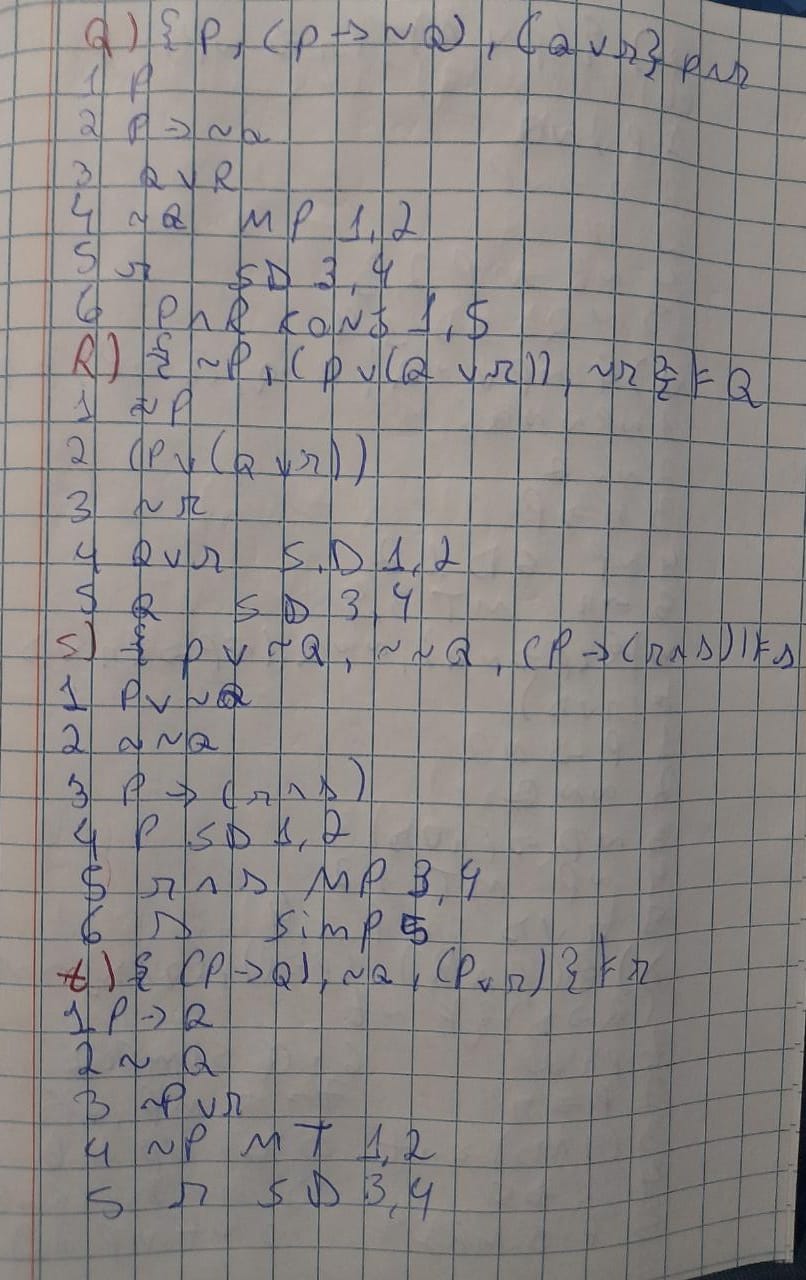 Q) {P, (P → ~Q), (Q ∨ r} P ∧ r
1 P
2 P → ~Q
3 Q ∨ R
4 ~Q MP 1,2
5 r SD 3,4
6 P ∧ R CONJ 1,5
R) {~P, (P ∨ (Q ∨ r)), ~r} ⊢ Q
1 ~P
2 (P ∨ (Q ∨ r))
3 ~r
4 Q ∨ r S.D 1,2
5 Q SD 3,4
S) { P ∨ ~Q, ~~Q, (P → (r ∧ s)) ⊢ s
1 P ∨ ~Q
2 ~~Q
3 P → (r ∧ s)
4 P SD 1,2
5 r ∧ s MP 3,4
6 s Simp 5
t) { (P → Q), ~Q, (P ∨ r) } ⊢ r
1 P → Q
2 ~ Q
3 ~P ∨ r
4 ~P MT 1,2
5 r SD 3,4